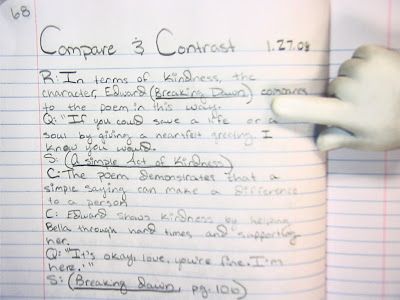 68
Compare & Contrast 1.27.08
R: In terms of kindness, the
character, Edward (Breaking Dawn) compares
to the poem in this way.
Q: "If you could save a life or a
soul by giving a heartfelt greeting. I
know you would.
S: (A simple Act of Kindness)
C: The poem demonstrates that a
simple saying can make a difference
to a person
C: Edward shows kindness by helping
Bella through hard times and supporting
her.
Q: "It's okay, love, you're fine. I'm
here.'"
S: (Breaking Dawn, pg. 106)